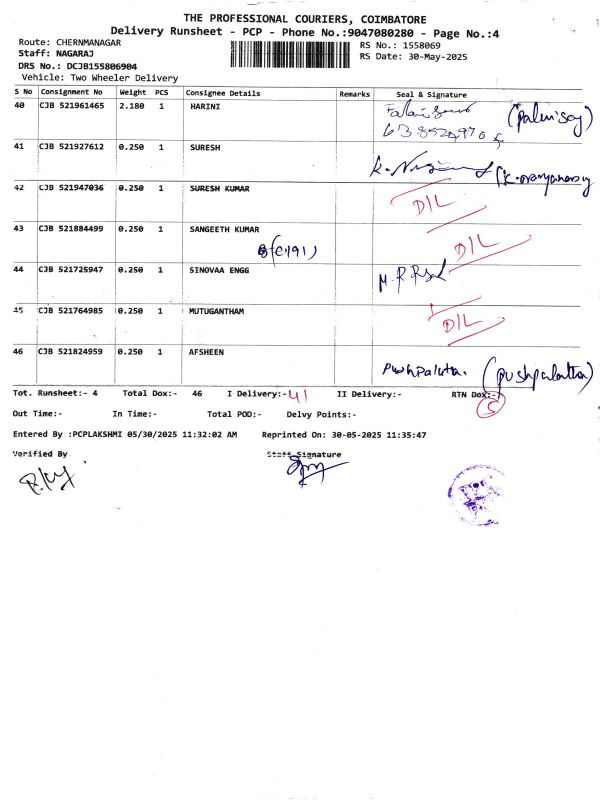 THE PROFESSIONAL COURIERS, COIMBATORE
Delivery Runsheet - PCP - Phone No.:9047080280 - Page No.:4
Route: CHERNMANAGAR
RS No.: 1558069
Staff: NAGARAJ
RS Date: 30-May-2025
DRS No.: DCJB155806904
Vehicle: Two Wheeler Delivery
S No Consignment No Weight PCS Consignee Details Remarks Seal & Signature
40 CJB 521961465 2.180 1 HARINI
41 CJB 521927612 0.250 1 SURESH
42 CJB 521947036 0.250 1 SURESH KUMAR D/L
43 CJB 521884499 0.250 1 SANGEETH KUMAR D/L
44 CJB 521725947 0.250 1 SINOVAA ENGG
45 CJB 521764985 0.250 1 MUTUGANTHAM D/L
46 CJB 521824959 0.250 1 AFSHEEN Pushpalatha. (pushpalatha)
Tot. Runsheet:- 4 Total Dox:- 46 I Delivery:- 41 II Delivery:- RTN Dox:- 5
Out Time:- In Time:- Total POD:- Delvy Points:-
Entered By :PCPLAKSHMI 05/30/2025 11:32:02 AM Reprinted On: 30-05-2025 11:35:47
Verified By Staff Signature